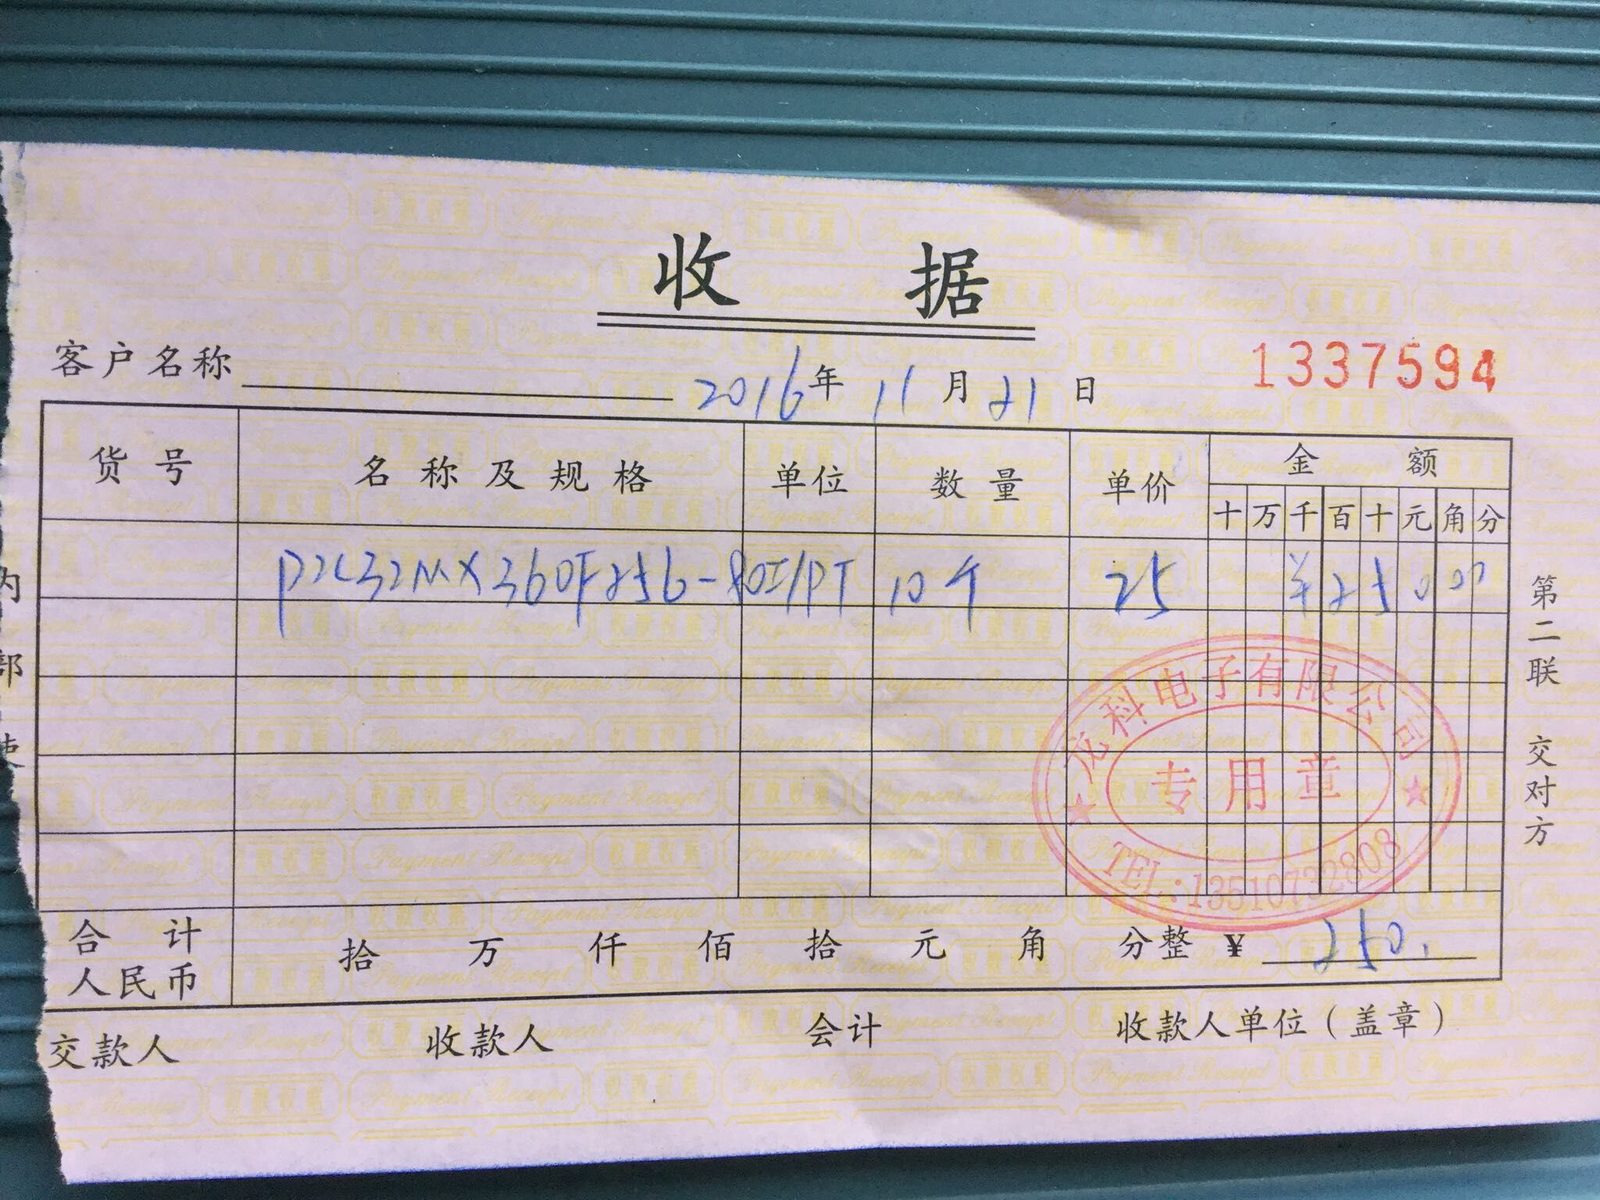 收 据
客户名称 2016年 11月21日 1337594
货号 名称及规格 单位 数量 单价 金额
十 万 千 百 十 元 角 分
P2C32MX360F256-80I/PT 10个 25 ¥25000
龙科电子有限公司
专用章
TEL:13510732808
合计
人民币
拾 万 仟 佰 拾 元 角 分整 ¥ 250.
交款人 收款人 会计 收款人单位(盖章)
第二联 交对方
内部使